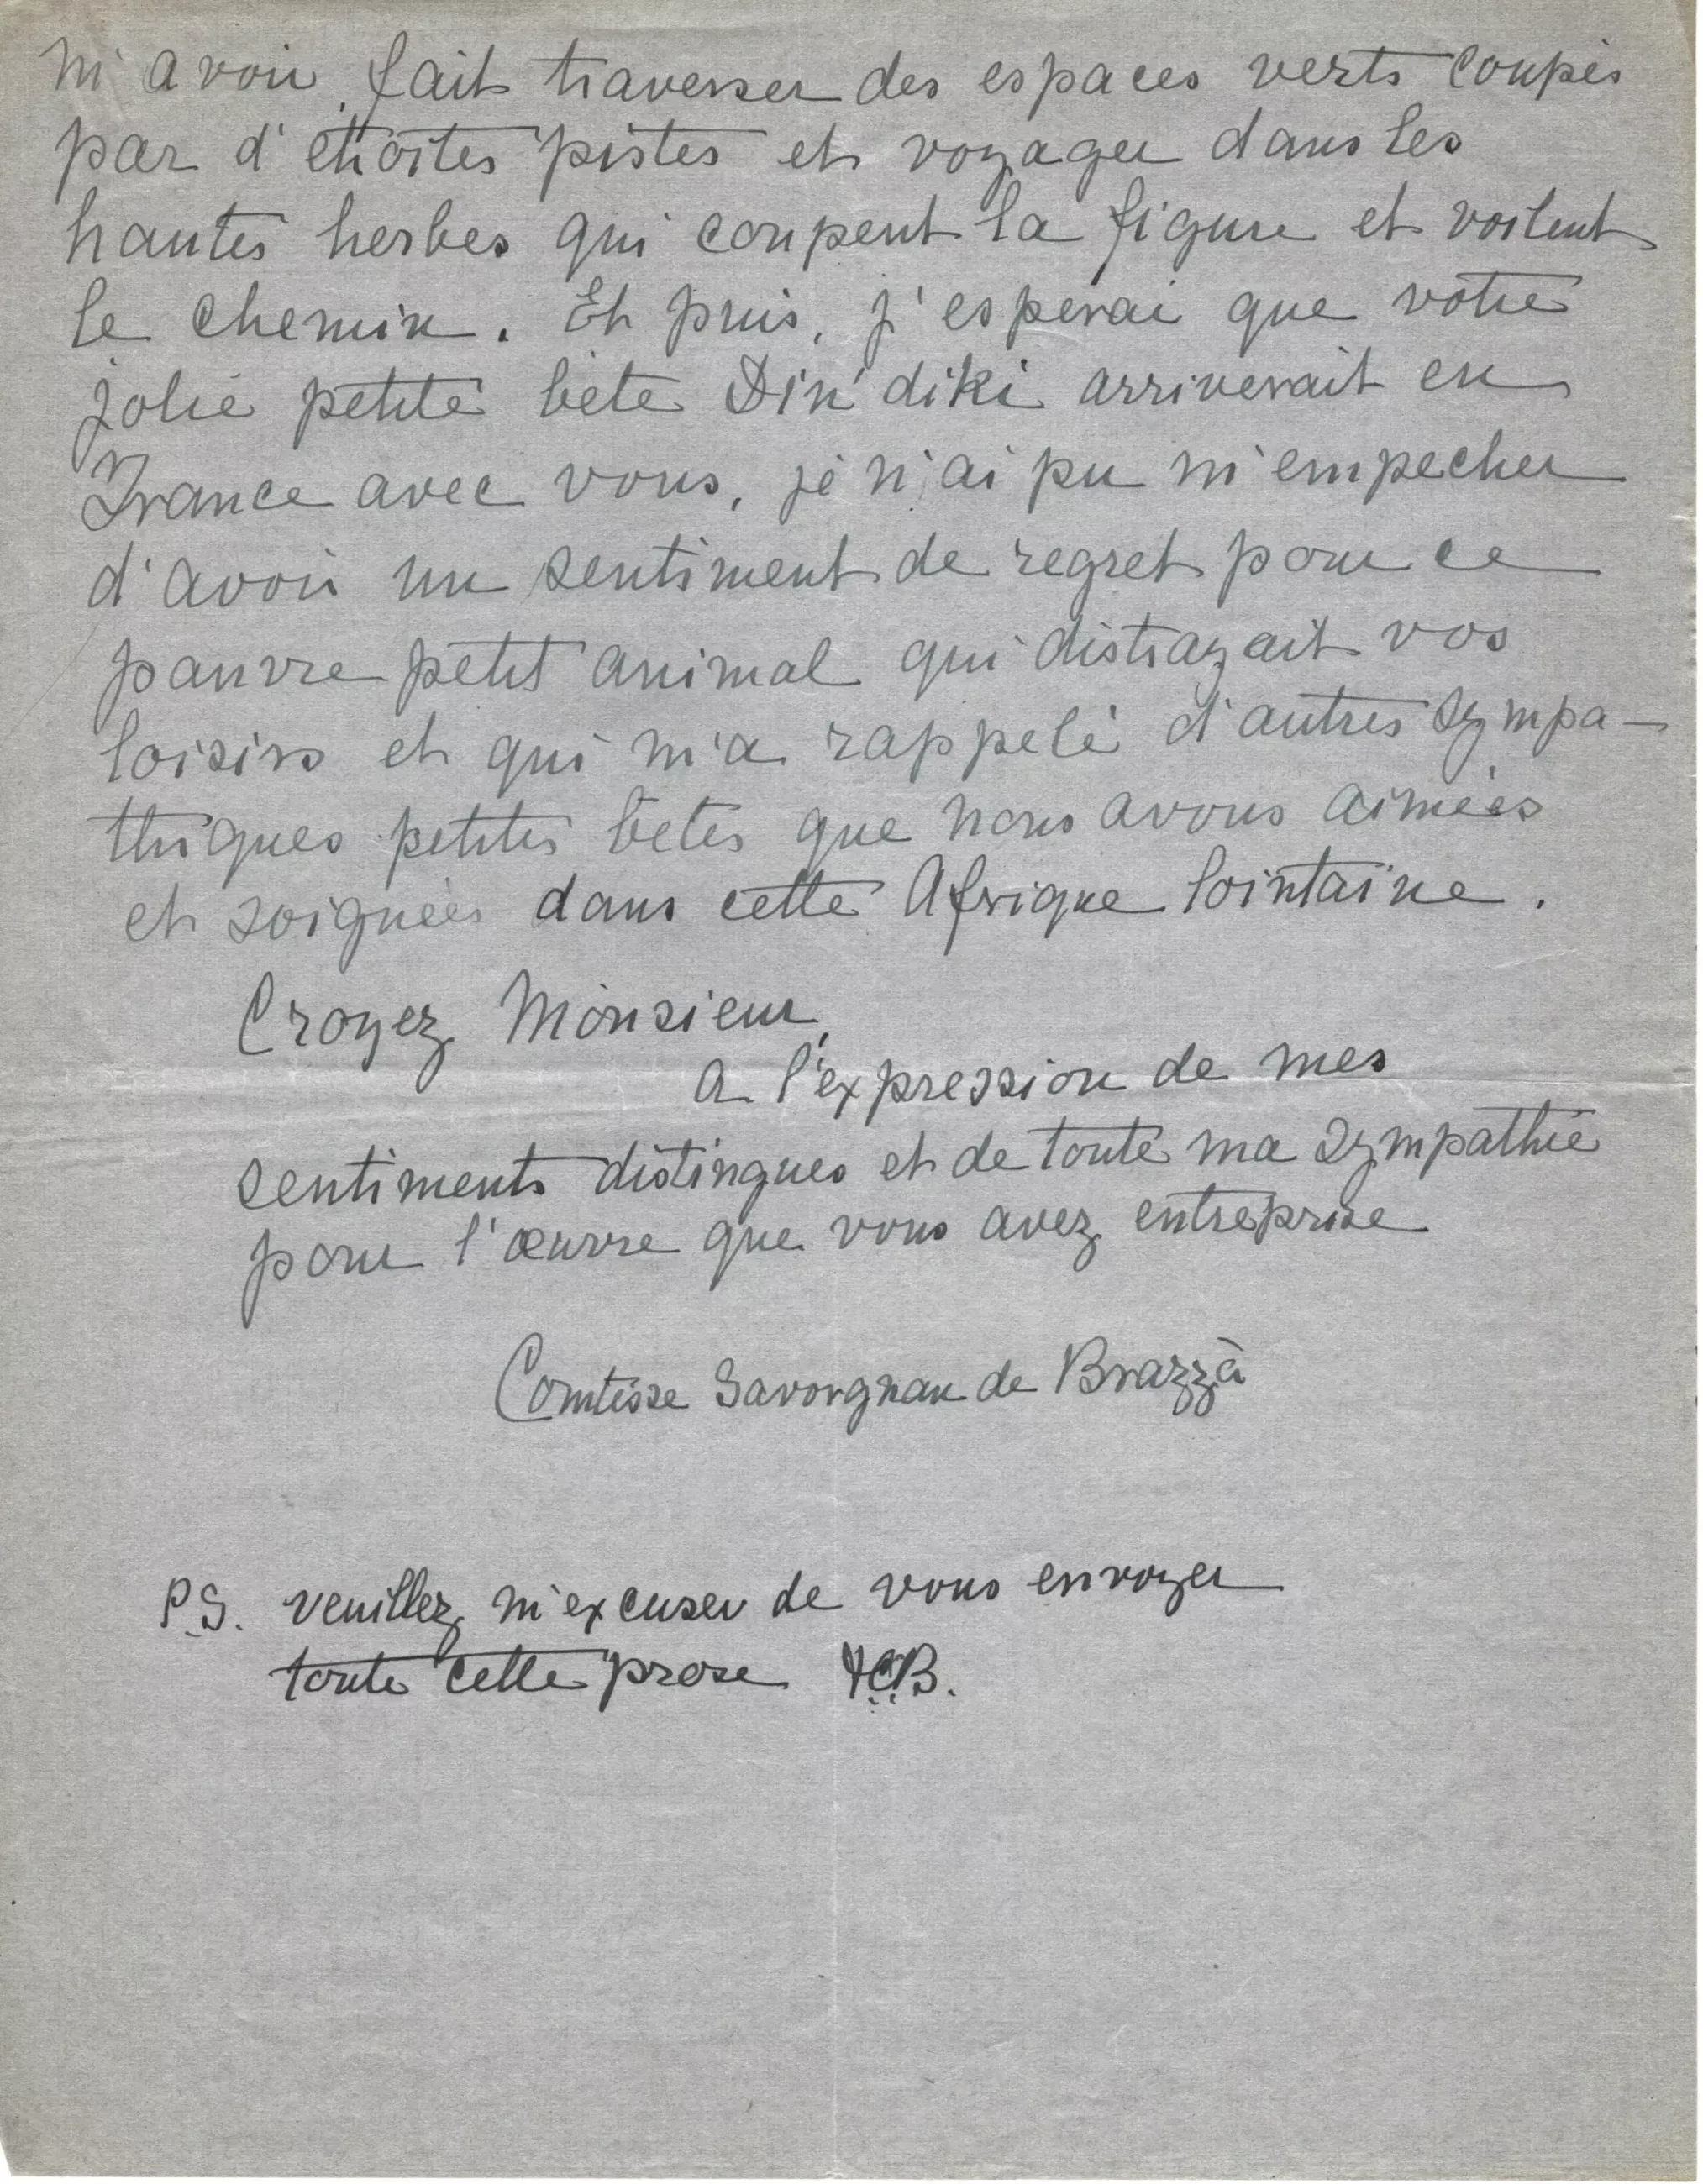 m'avoir fait traverser des espaces verts coupés
par d'étroites pistes et voyager dans les
hautes herbes qui coupent la figure et voilent
le chemin. Et puis, j'esperai que votre
jolie petite bête Din'diki arriverait en
France avec vous, je n'ai pu m'empecher
d'avoir un sentiment de regret pour ce
pauvre petit animal qui distrayait vos
loisirs et qui m'a rappelé d'autres sympa-
thiques petites bêtes que nous avons aimées
et soignées dans cette Afrique lointaine.
Croyez, Monsieur,
a l'expression de mes
sentiments distingues et de toute ma sympathie
pour l'œuvre que vous avez entreprise
Comtesse Savorgnan de Brazzà
P.S. veuillez m'excuser de vous envoyer
toute cette prose